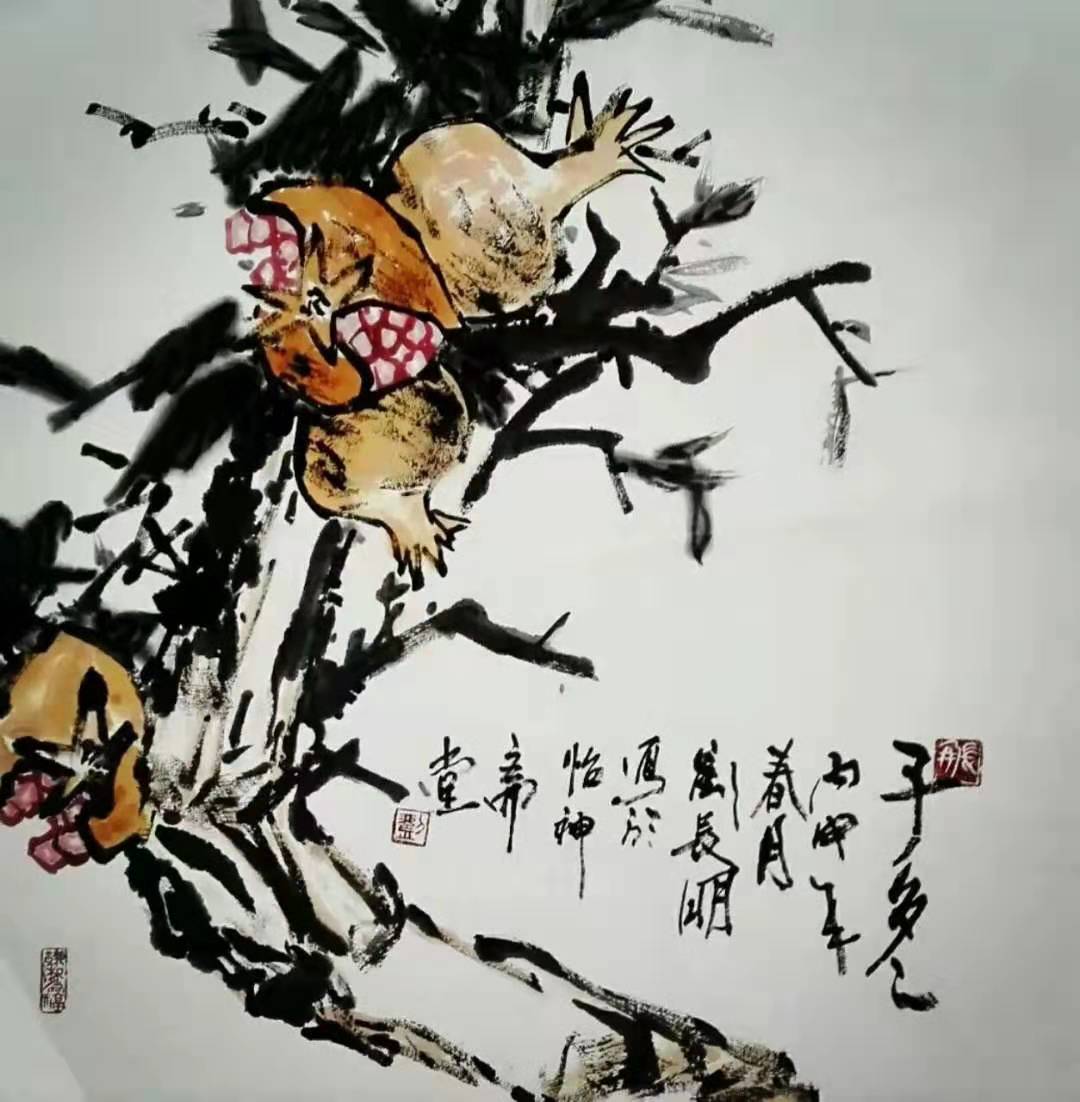 子多々
丙申年
春月
劉長明
寫於
怡神
斋
堂